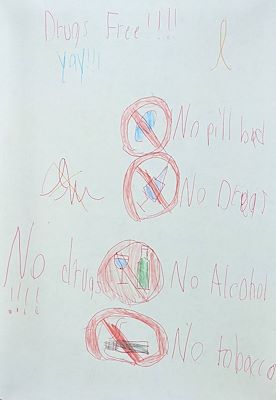 Drugs Free!!!!
yay!!!
No pill bad
No Drogs
No drugs
!!!!
No Alcohol
No tobacco